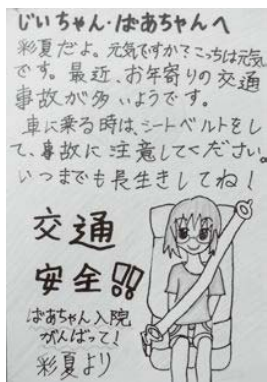 じいちゃん・ばあちゃんへ
彩夏だよ。元気ですか?こっちは元気
です。最近、お年寄りの交通
事故が多いようです。
車に乗る時は、シートベルトをし
て、事故に注意してください。
いつまでも長生きしてね!
交通
安全!!
ばあちゃん入院
がんばって!
彩夏より